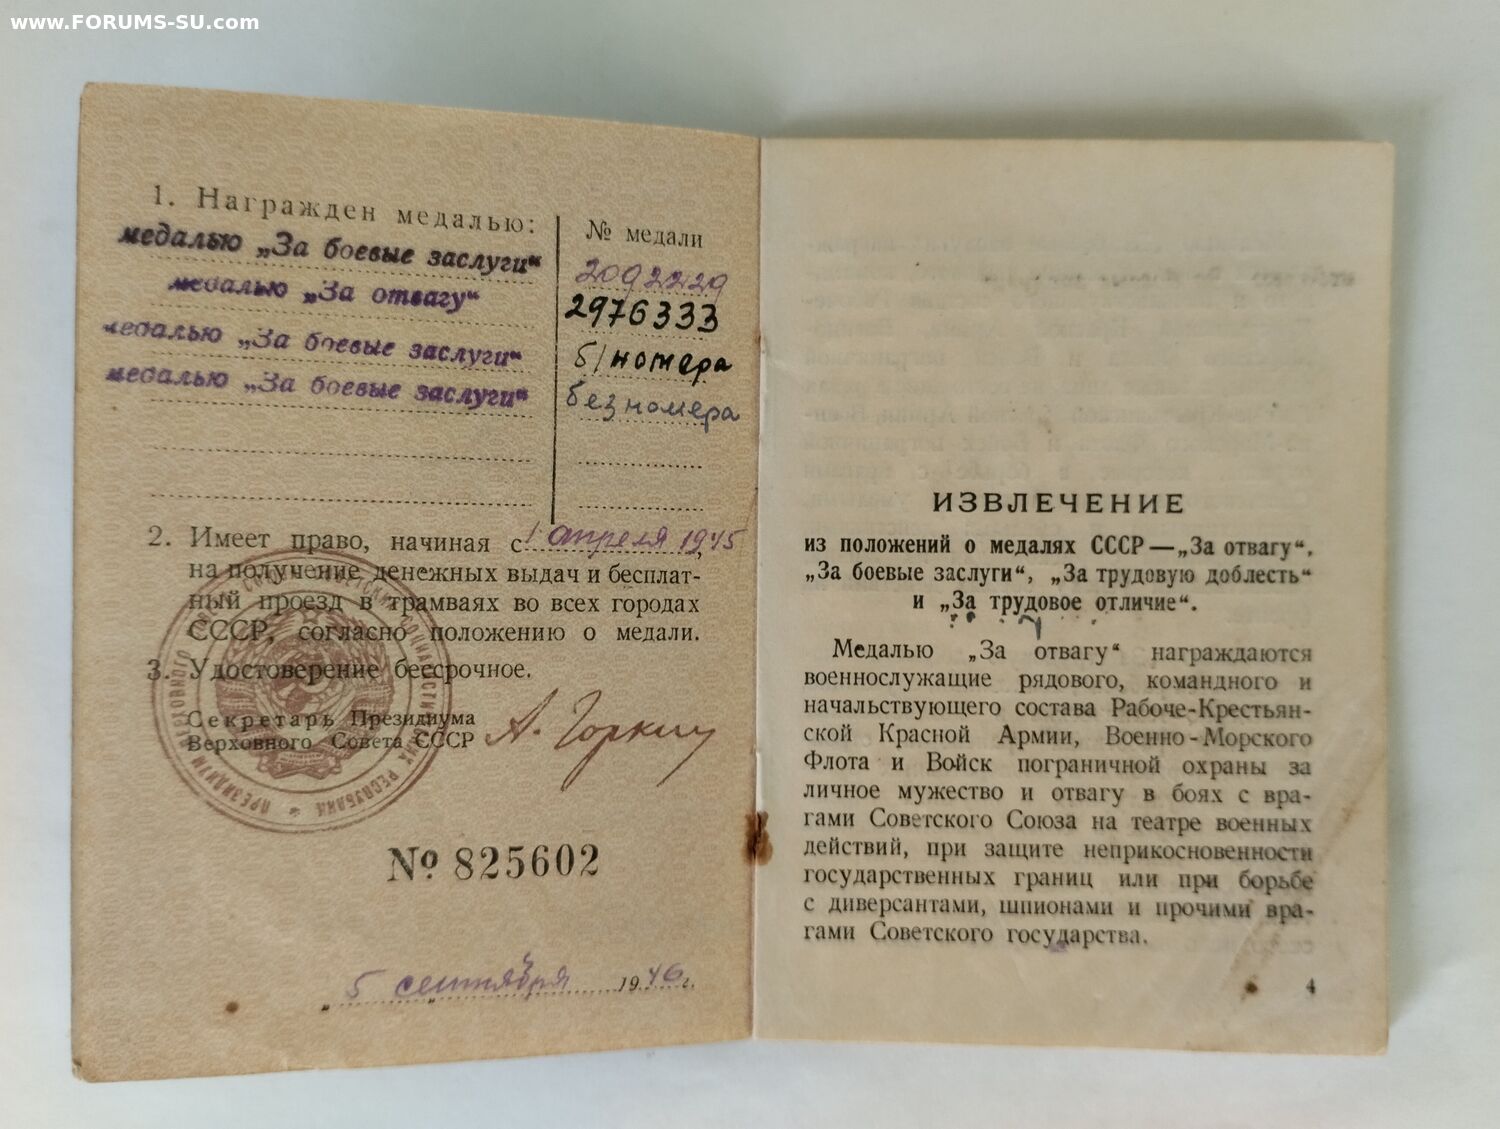 www.FORUMS-SU.com
1. Награжден медалью:
№ медали
медалью „За боевые заслуги“
2092229
медалью „За отвагу“
2976333
медалью „За боевые заслуги“
б/номера
медалью „За боевые заслуги“
без номера
2. Имеет право, начиная с 1 апреля 1945,
на получение денежных выдач и бесплат-
ный проезд в трамваях во всех городах
СССР, согласно положению о медали.
3. Удостоверение бессрочное.
Секретарь Президиума
Верховного Совета СССР
А. Горкин
№ 825602
„ 5 „ сентября 1946 г.
ИЗВЛЕЧЕНИЕ
из положений о медалях СССР—„За отвагу“,
„За боевые заслуги“, „За трудовую доблесть“
и „За трудовое отличие“.
Медалью „За отвагу“ награждаются
военнослужащие рядового, командного и
начальствующего состава Рабоче-Крестьян-
ской Красной Армии, Военно-Морского
Флота и Войск пограничной охраны за
личное мужество и отвагу в боях с вра-
гами Советского Союза на театре военных
действий, при защите неприкосновенности
государственных границ или при борьбе
с диверсантами, шпионами и прочими вра-
гами Советского государства.
4